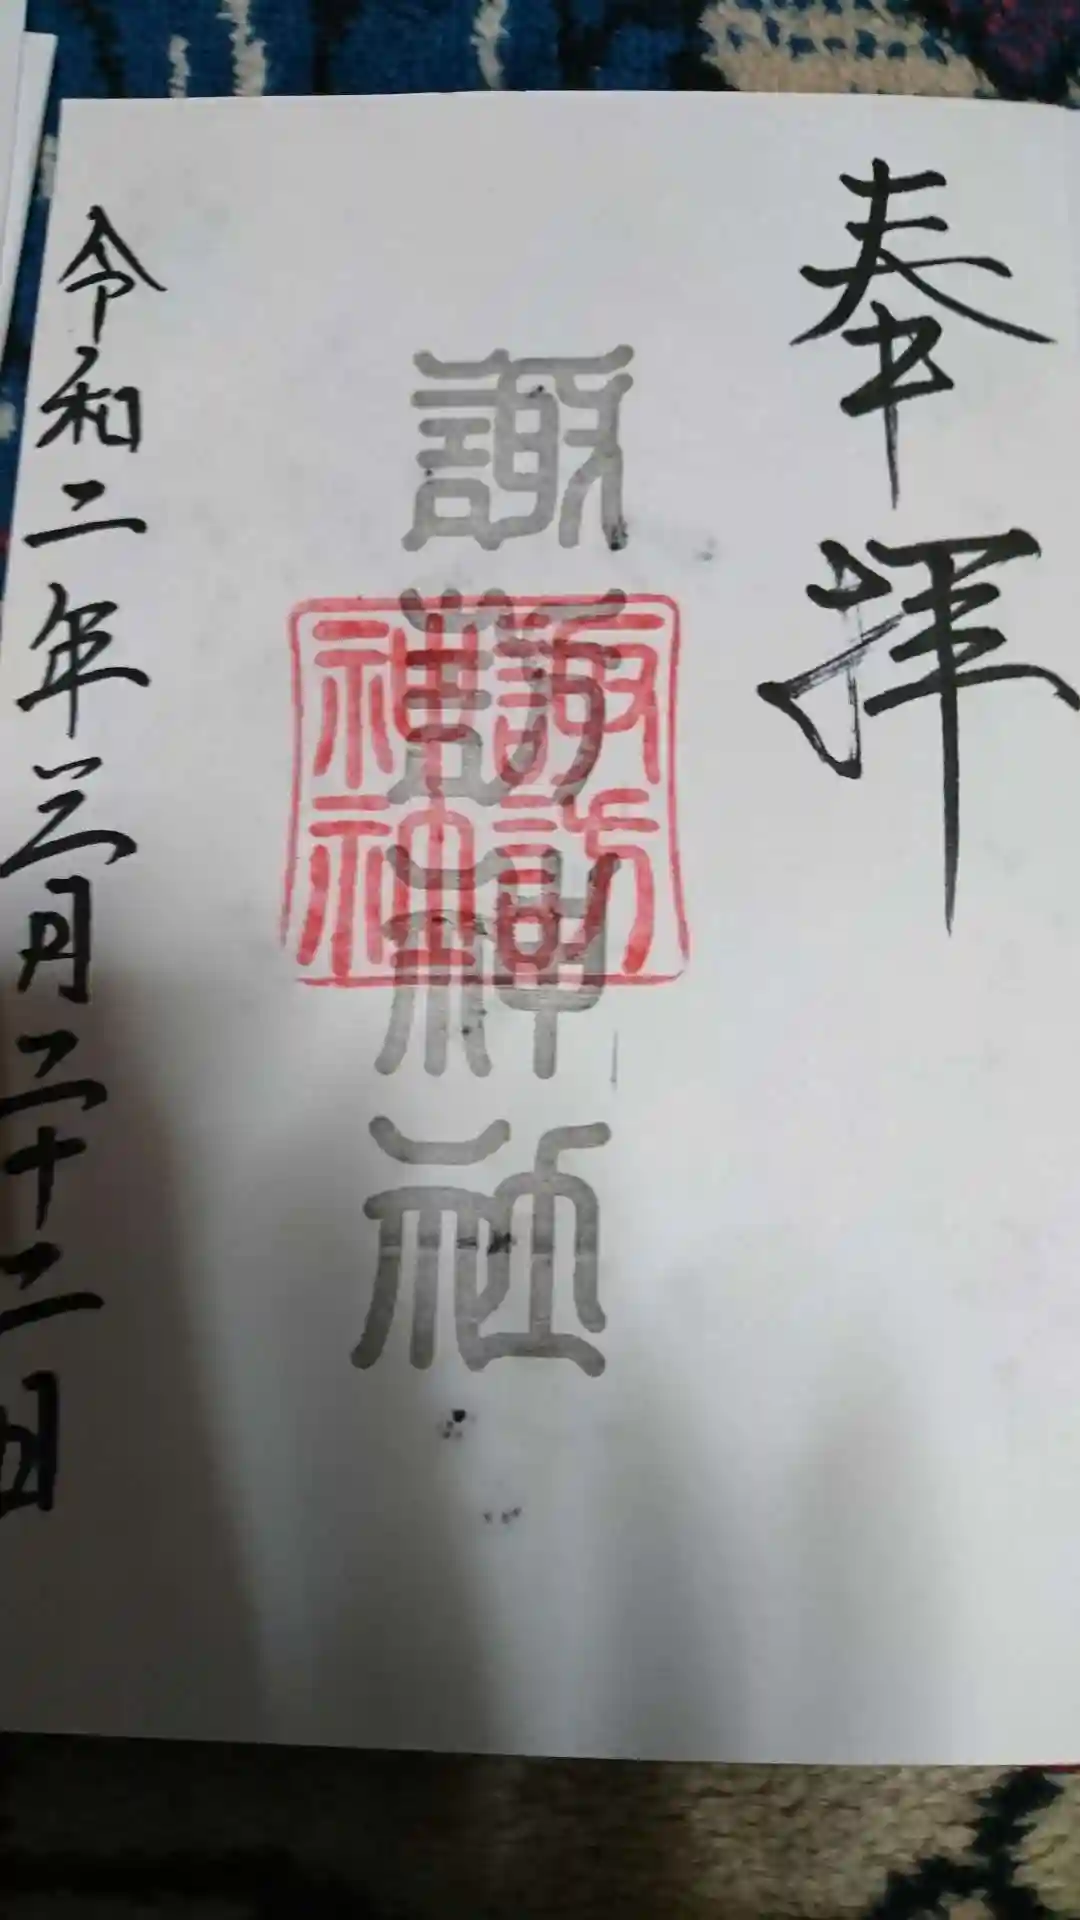 奉拝
諏訪神社
諏訪
神社
令和二年三月二十二日